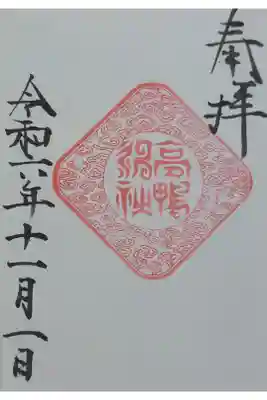 奉拝
高鴨神社
令和六年十一月一日